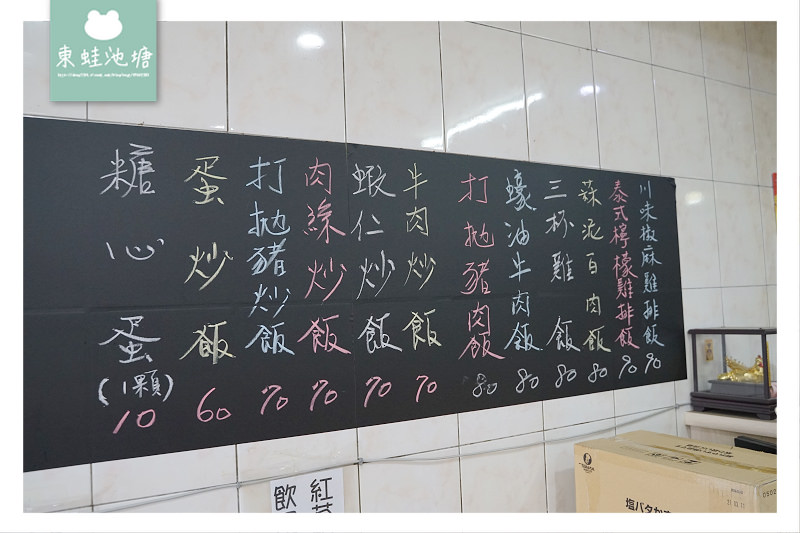 東蛙池塘
川味椒麻雞排飯 90
泰式檸檬雞排飯 90
蒜泥白肉飯 80
三杯雞飯 80
蠔油牛肉飯 80
打拋豬肉飯 80
牛肉炒飯 70
蝦仁炒飯 70
肉絲炒飯 70
打拋豬炒飯 70
蛋炒飯 60
糖心蛋(1顆) 10
紅茶
飲
塩バタかま